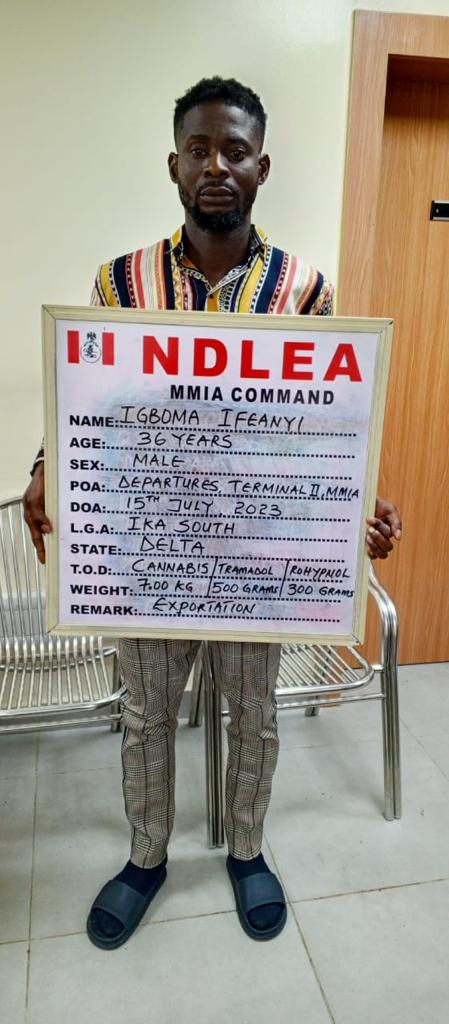 NDLEA
MMIA COMMAND
NAME: IGBOMA IFEANYI
AGE: 36 YEARS
SEX: MALE
POA: DEPARTURES, TERMINAL II, MMIA
DOA: 15TH JULY, 2023
L.G.A: IKA SOUTH
STATE: DELTA
T.O.D: CANNABIS | TRAMADOL | ROHYPNOL
WEIGHT: 7.00 KG | 500 GRAMS | 300 GRAMS
REMARK: EXPORTATION